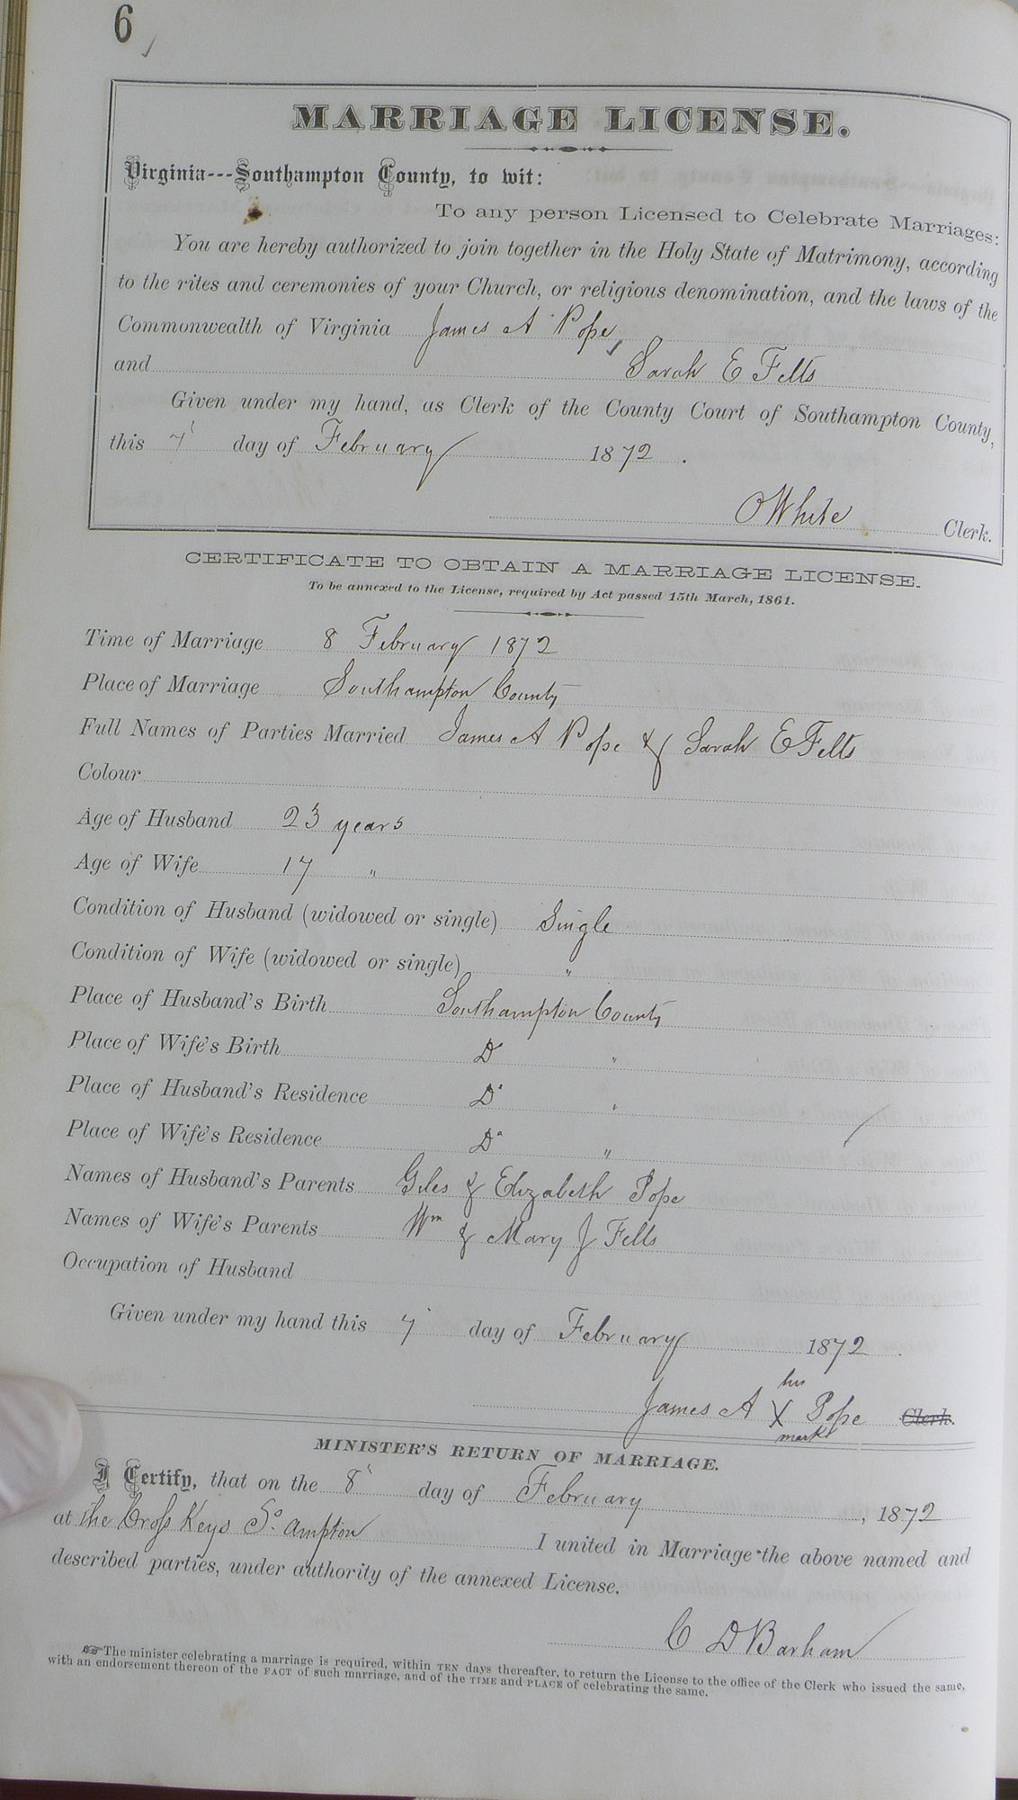 6
MARRIAGE LICENSE.
Virginia---Southampton County, to wit:
To any person Licensed to Celebrate Marriages:
You are hereby authorized to join together in the Holy State of Matrimony, according
to the rites and ceremonies of your Church, or religious denomination, and the laws of the
Commonwealth of Virginia James A Pope,
and Sarah E Felts
Given under my hand, as Clerk of the County Court of Southampton County,
this 7 day of February 1872.
O White Clerk.
CERTIFICATE TO OBTAIN A MARRIAGE LICENSE.
To be annexed to the License, required by Act passed 15th March, 1861.
Time of Marriage 8 February 1872
Place of Marriage Southampton County
Full Names of Parties Married James A Pope & Sarah E Felts
Colour
Age of Husband 23 years
Age of Wife 17 "
Condition of Husband (widowed or single) Single
Condition of Wife (widowed or single) "
Place of Husband's Birth Southampton County
Place of Wife's Birth Do "
Place of Husband's Residence Do "
Place of Wife's Residence Do "
Names of Husband's Parents Giles & Elizabeth Pope
Names of Wife's Parents Wm & Mary J Felts
Occupation of Husband
Given under my hand this 7 day of February 1872.
his
James A X Pope Clerk.
mark
MINISTER'S RETURN OF MARRIAGE.
I Certify, that on the 8 day of February, 1872
at the Cross Keys So. ampton I united in Marriage the above named and
described parties, under authority of the annexed License.
C D Barham
☞ The minister celebrating a marriage is required, within TEN days thereafter, to return the License to the office of the Clerk who issued the same,
with an endorsement thereon of the FACT of such marriage, and of the TIME and PLACE of celebrating the same.